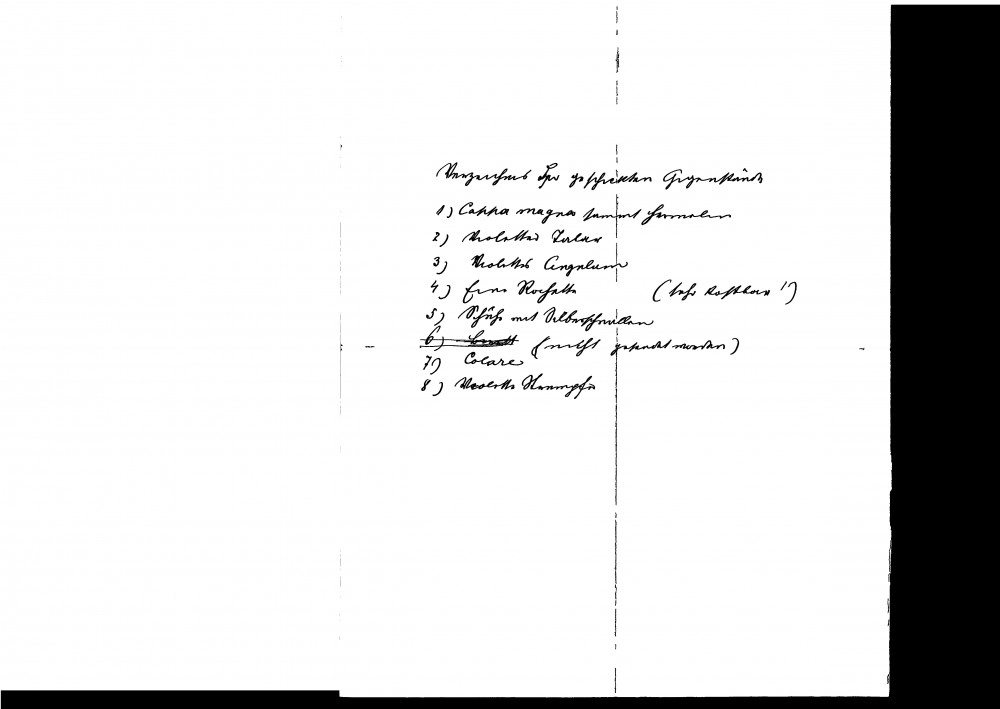 Verzeichnis der geschickten Gegenstände
1) Cappa magna sammt Hermelin
2) Violetter Talar
3) Violettes Cingulum
4) Eine Rochette (sehr kostbar !!)
5) Schuhe mit Silberschnallen
6) Birett (nicht gesendet worden)
7) Colare
8) Violette Struempfe